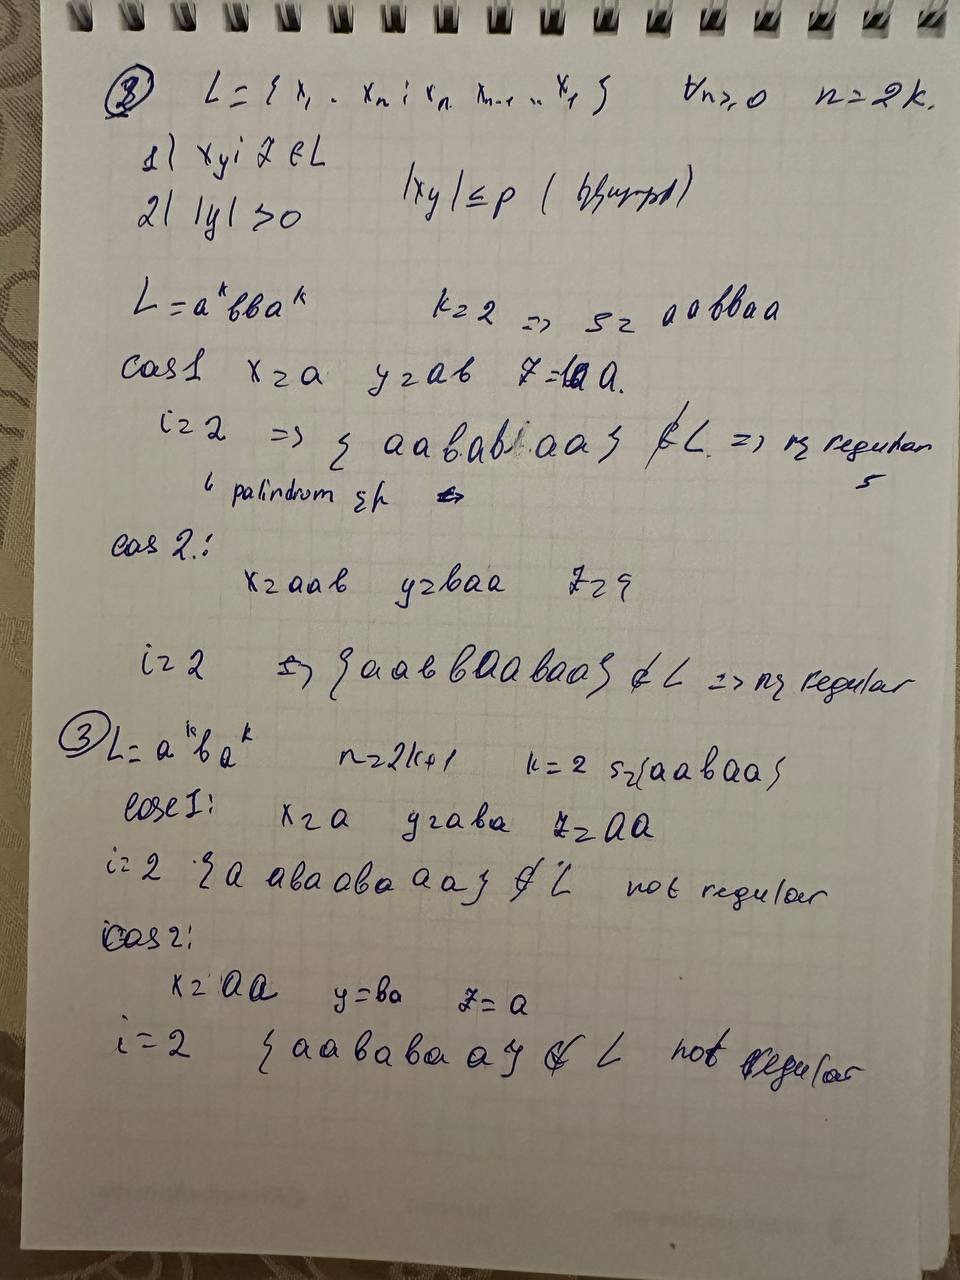 ② L = { x₁ .. xₙ : xₙ xₙ₋₁ .. x₁ } ∀n≥0 n=2k.
1) xyⁱz ∈ L
2) |y| > 0 |xy| ≤ p (
L = aᵏ ввaᵏ k=2 => s= aaввaa
cas 1 x=a y=aв z= a.
i=2 => { aaвaв aa } ∉ L. => regular
palindrom չի
cas 2.:
x=aaв y=вaa z=a
i=2 => {aaввaaвaa} ∉ L => ոչ regular
③ L= aᵏвaᵏ n=2k+1 k=2 s={aaвaa}
case 1: x=a y=aвa z=aa
i=2 {a aвaaвa aa} ∉ L not regular
cas 2:
x= aa y=вa z= a
i=2 {aaвaвa a} ∉ L not regular